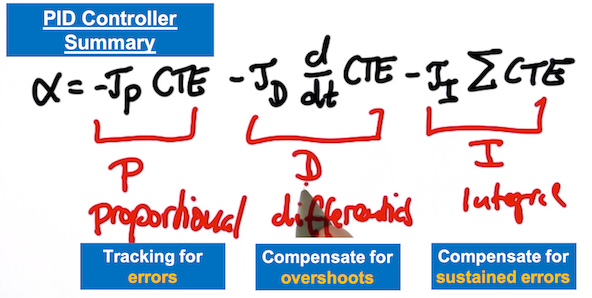 PID Controller
Summary
α = -τP CTE - τD d/dt CTE - τI Σ CTE
P D I
proportional differential integral
Tracking for
errors
Compensate for
overshoots
Compensate for
sustained errors